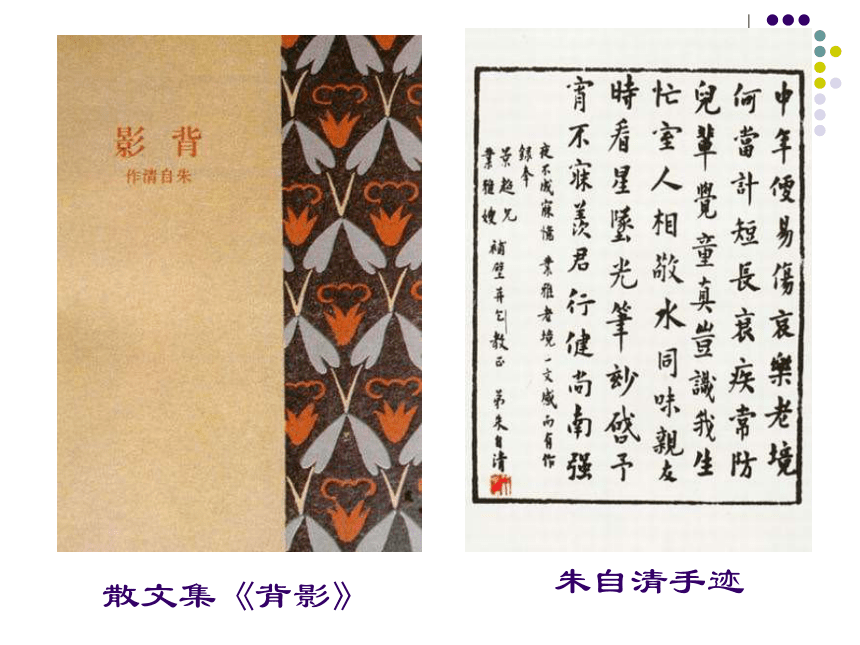 背影
朱自清作
中年便易傷哀樂老境
何當計短長衰疾常防
兒輩覺童真豈識我生
忙室人相敬水同味親友
時看星墜光筆妙啓予
宵不寐羨君行健尚南强
夜不成寐憶業雅老境一文感而有作
錄奉
景超兄
業雅嫂
補壁并乞教正 弟朱自清
散文集《背影》
朱自清手迹